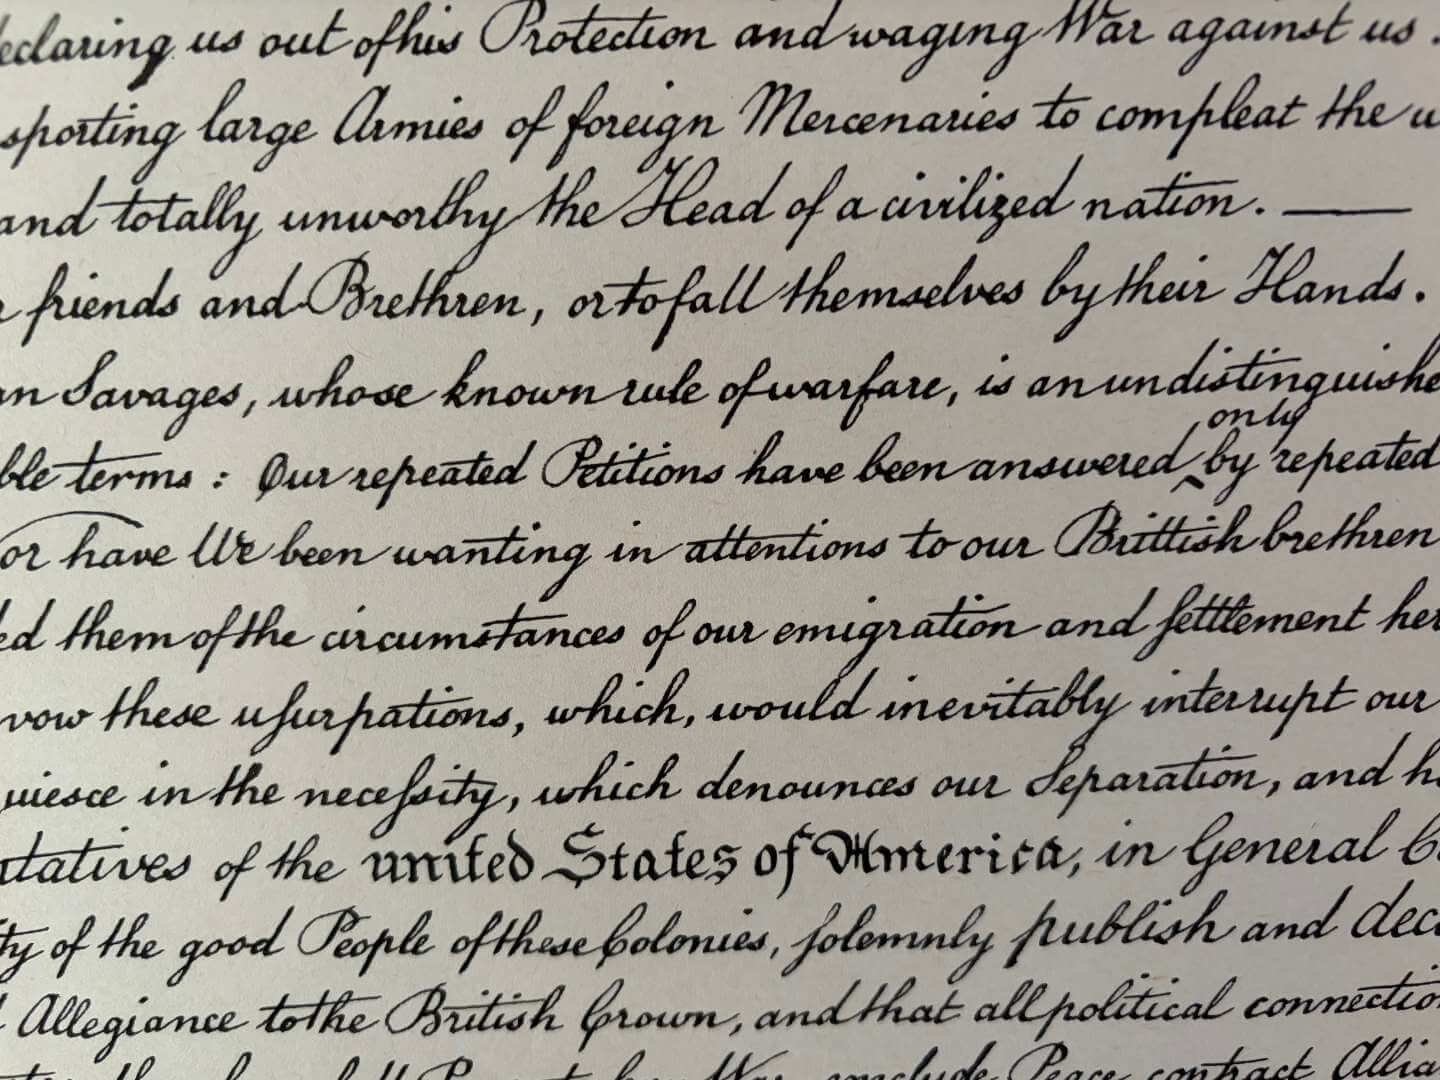 eclaring us out of his Protection and waging War against us .
sporting large Armies of foreign Mercenaries to compleat the w
and totally unworthy the Head of a civilized nation. —
r friends and Brethren, or to fall themselves by their Hands.
an Savages, whose known rule of warfare, is an undistinguishe
only
ble terms : Our repeated Petitions have been answered ‸ by repeated
or have We been wanting in attentions to our Brittish brethren
ed them of the circumstances of our emigration and ſettlement her
vow these uſurpations, which, would inevitably interrupt our
uiesce in the neceſsity, which denounces our Separation, and h
ntatives of the united States of America, in General C
ty of the good People of these Colonies, ſolemnly publish and dec
Allegiance to the British Crown, and that all political connectio
War, conclude Peace contract Allia